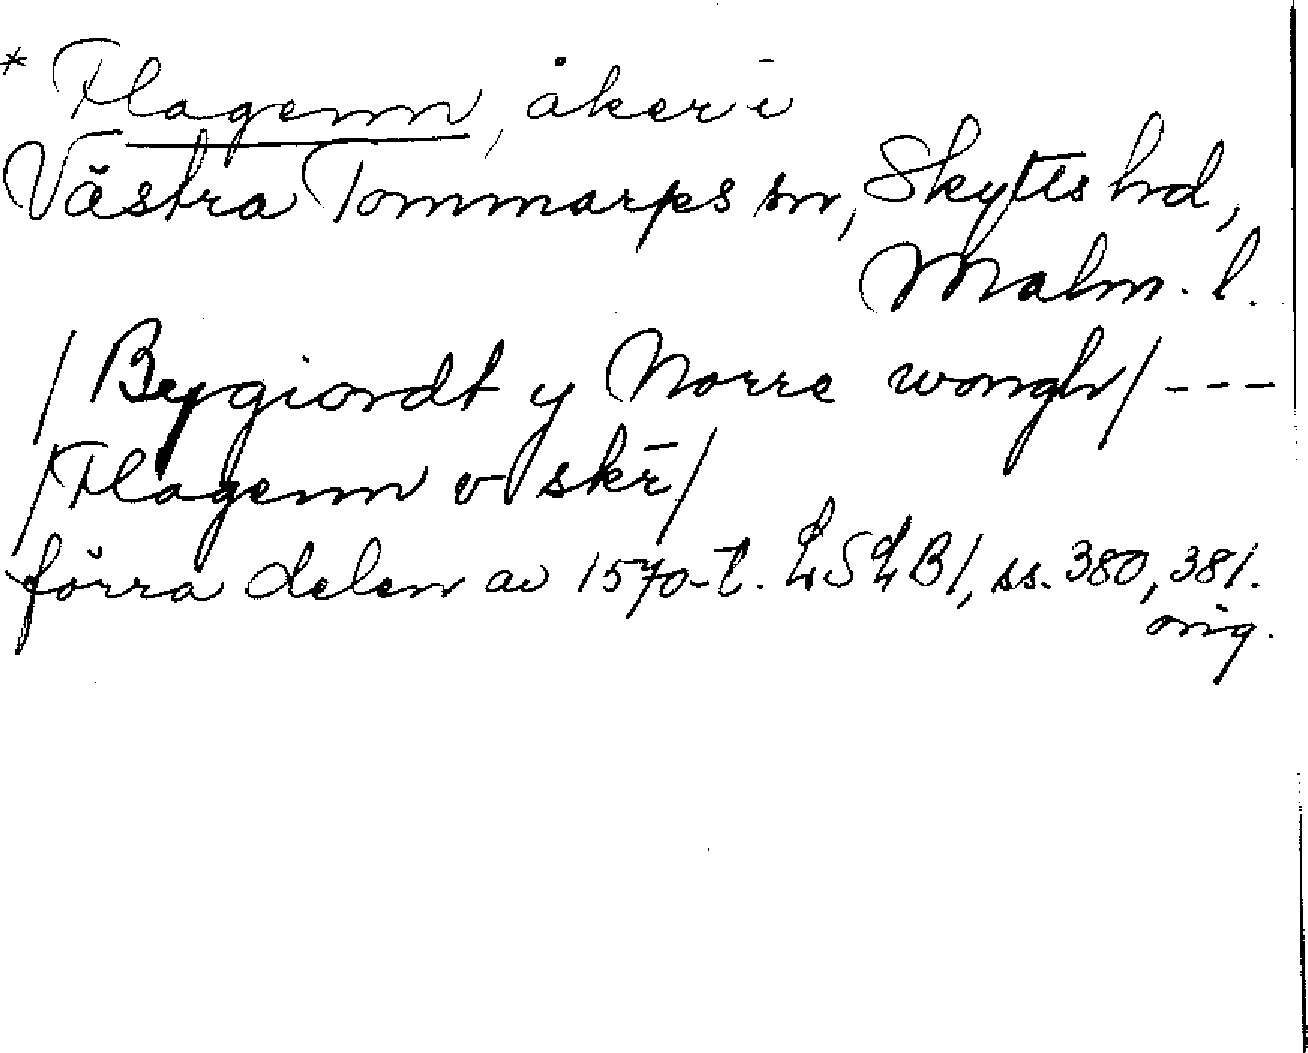 * Flagenn, åker i
Västra Tommarps sn, Skytts hd,
Malm. l.
/Bygiordt y Norre wongh/ ---
/Flagenn v skē/
förra delen av 1570-t. LSLB1, ss. 380, 381.
orig.